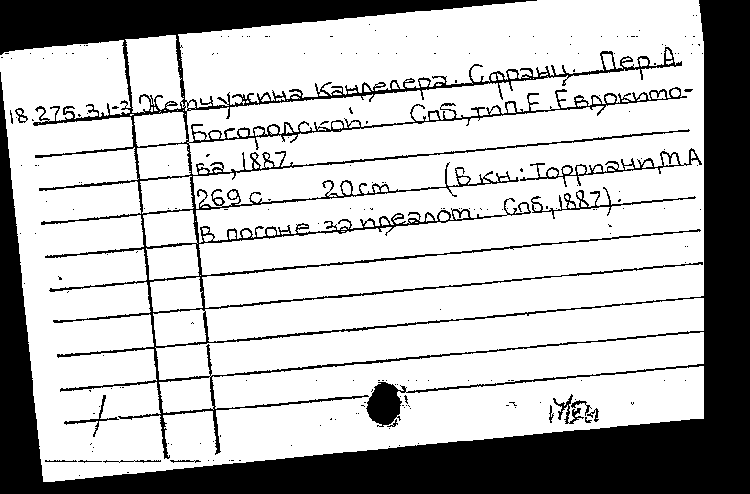 18.275.3.1-3 Жемчужина Канделера. С франц. Пер. А.
Богородской. Спб., тип. Е. Евдокимо-
ва, 1887.
269 с. 20 см (В кн.: Торриани, М.А
В погоне за идеалом. Спб., 1887).